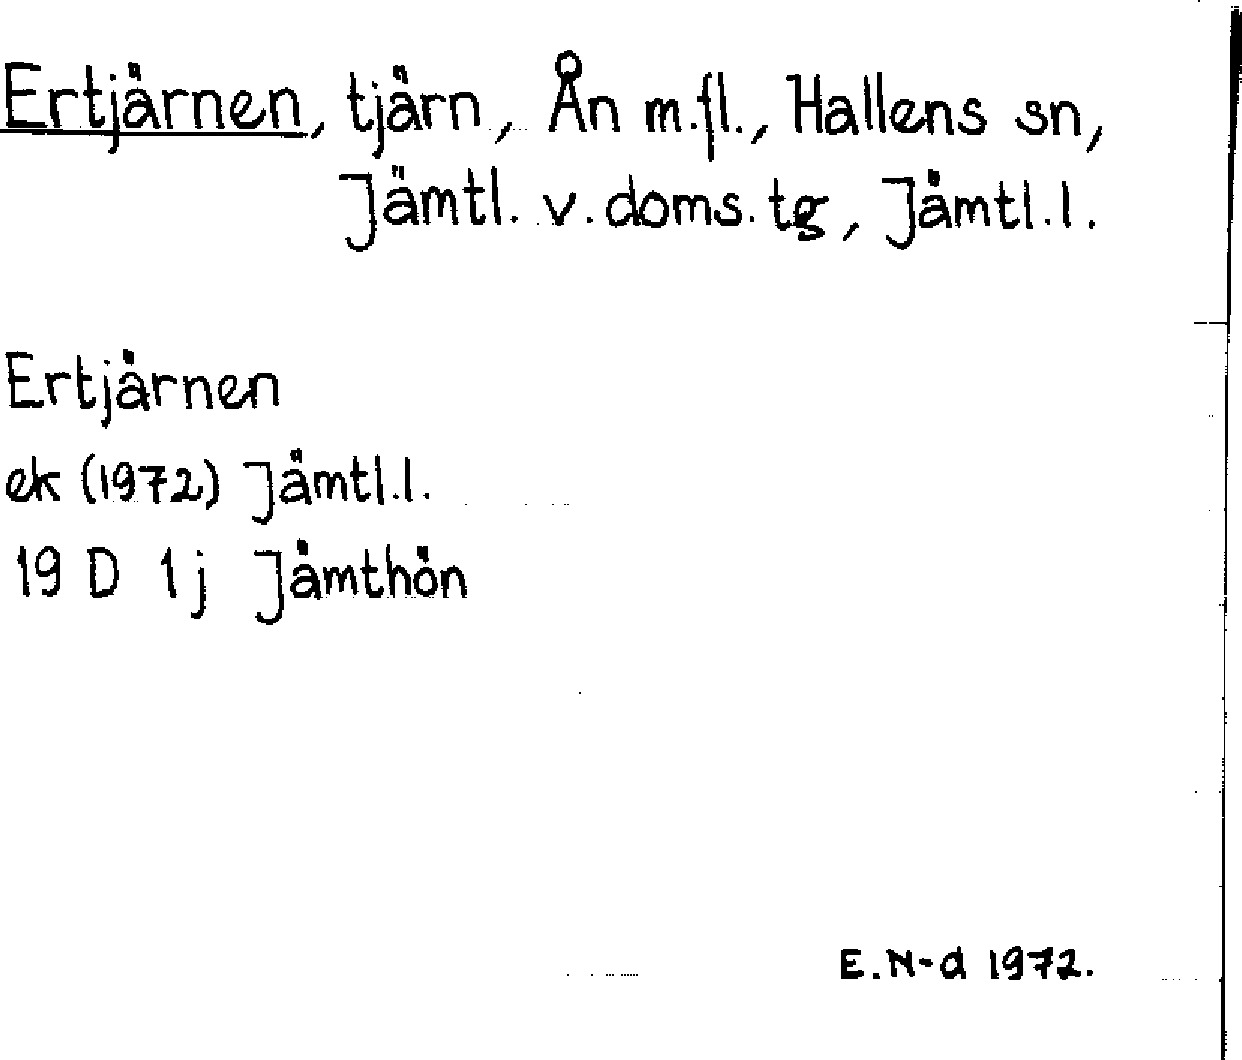 Ertjärnen, tjärn, Ån m.fl., Hallens sn,
Jämtl. v. doms. tg, Jämtl.l.
Ertjärnen
ek (1972) Jämtl.l.
19 D 1j Jämthön
E.N-d 1972.